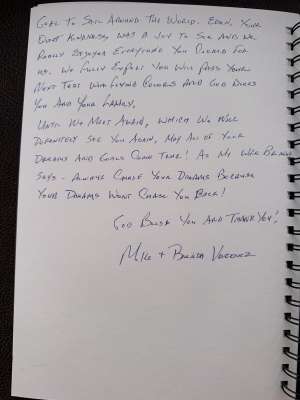 Goal to Sail Around The World. Eden, Your
Quiet Kindness was a Joy to See and We
Really Enjoyed Everything You Picked For
us. We Fully Expect You Will Pass Your
Next Test With Flying Colours And God Bless
You And Your Family.
Until We Meet Again, Which We Will
Definitely See You Again, May All of Your
Dreams And Goals Come True! As My Wife Brenda
Says - Always Chase Your Dreams Because
Your Dreams Wont Chase You Back!
God Bless You And Thank You!
Mike + Brenda